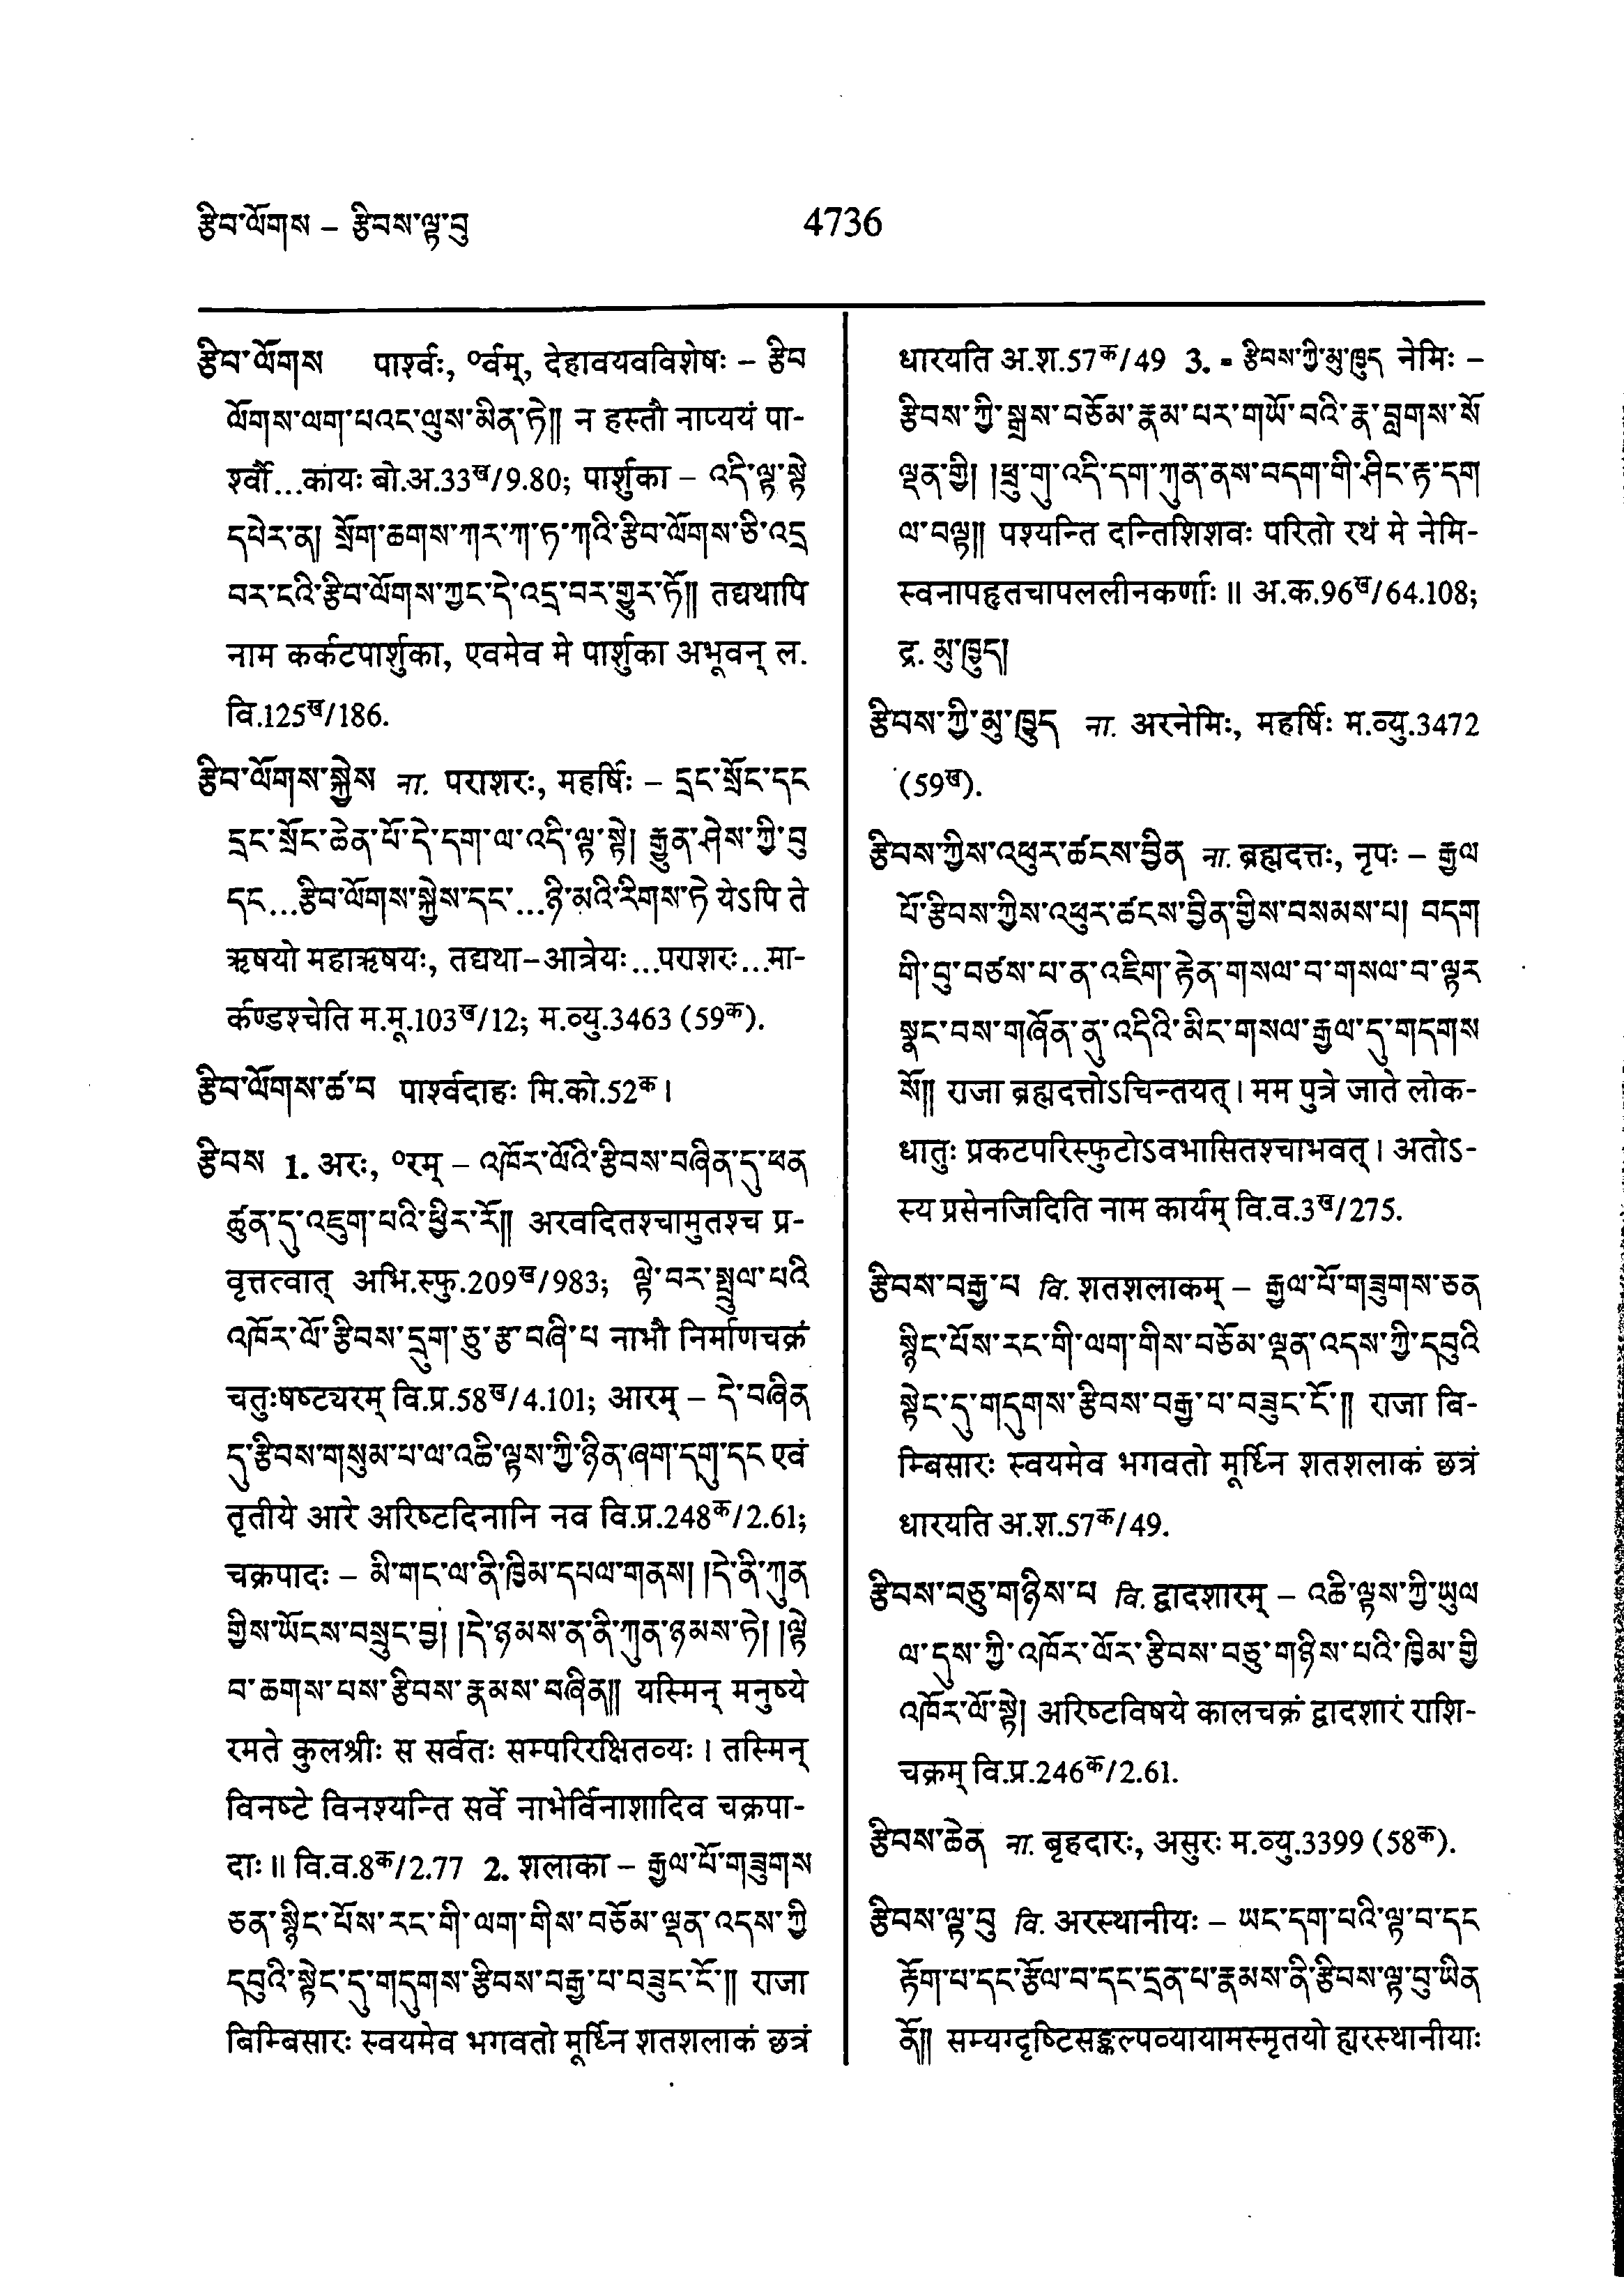 རྩིབ་ལོགས – རྩིབས་ལྟ་བུ
4736
རྩིབ་ལོགས पार्श्वः, ०र्वम्, देहावयवविशेषः – རྩིབ
ལོགས་ལག་པའང་ལུས་མིན་ཏེ༎ न हस्तौ नाप्ययं पा-
र्श्वौ...कायः बो.अ.33ख/9.80; पार्शुका – འདི་ལྟ་སྟེ
དཔེར་ན། སྲོག་ཆགས་ཀར་ཀ་ཏ་ཀའི་རྩིབ་ལོགས་ཅི་འདྲ
བར་ངའི་རྩིབ་ལོགས་ཀྱང་དེ་འདྲ་བར་གྱུར་ཏོ༎ तद्यथापि
नाम कर्कटपार्शुका, एवमेव मे पार्शुका अभूवन् ल.
वि.125ख/186.
རྩིབ་ལོགས་སྐྱེས ना. पराशरः, महर्षिः – དྲང་སྲོང་དང
དྲང་སྲོང་ཆེན་པོ་དེ་དག་ལ་འདི་ལྟ་སྟེ། རྒྱུན་ཤེས་ཀྱི་བུ
དང...རྩིབ་ལོགས་སྐྱེས་དང་...ཉི་མའི་རིགས་ཏེ येऽपि ते
ऋषयो महाऋषयः, तद्यथा–आत्रेयः...पराशरः...मा-
र्कण्डश्चेति म.मू.103ख/12; म.व्यु.3463 (59क).
རྩིབ་ལོགས་ཚ་བ पार्श्वदाहः मि.को.52क।
རྩིབས 1. अरः, ०रम् – འཁོར་ལོའི་རྩིབས་བཞིན་དུ་ཕན
ཚུན་དུ་འཇུག་པའི་ཕྱིར་རོ༎ अरवदितश्चामुतश्च प्र-
वृत्तत्वात् अभि.स्फु.209ख/983; ལྟེ་བར་སྤྲུལ་པའི
འཁོར་ལོ་རྩིབས་དྲུག་ཅུ་རྩ་བཞི་པ नाभौ निर्माणचक्रं
चतुःषष्ट्यरम् वि.प्र.58ख/4.101; आरम् – དེ་བཞིན
དུ་རྩིབས་གསུམ་པ་ལ་འཆི་ལྟས་ཀྱི་ཉིན་ཞག་དགུ་དང एवं
तृतीये आरे अरिष्टदिनानि नव वि.प्र.248क/2.61;
चक्रपादः – མི་གང་ལ་ནི་ཁྱིམ་དཔལ་གནས། །དེ་ནི་ཀུན
གྱིས་ཡོངས་བསྲུང་བྱ། །དེ་ཉམས་ན་ནི་ཀུན་ཉམས་ཏེ། །ལྟེ
བ་ཆགས་པས་རྩིབས་རྣམས་བཞིན༎ यस्मिन् मनुष्ये
रमते कुलश्रीः स सर्वतः सम्परिरक्षितव्यः। तस्मिन्
विनष्टे विनश्यन्ति सर्वे नाभेर्विनाशादिव चक्रपा-
दाः॥ वि.व.8क/2.77 2. शलाका – རྒྱལ་པོ་གཟུགས
ཅན་སྙིང་པོས་རང་གི་ལག་གིས་བཅོམ་ལྡན་འདས་ཀྱི
དབུའི་སྟེང་དུ་གདུགས་རྩིབས་བརྒྱ་པ་བཟུང་ངོ་༎ राजा
बिम्बिसारः स्वयमेव भगवतो मूर्ध्नि शतशलाकं छत्रं
धारयति अ.श.57क/49 3. = རྩིབས་ཀྱི་མུ་ཁྱུད नेमिः –
རྩིབས་ཀྱི་སྒྲས་བཅོམ་རྣམ་པར་གཡོ་བའི་རྣ་བླགས་སོ
ལྡན་གྱི། །ཕྲུ་གུ་འདི་དག་ཀུན་ནས་བདག་གི་ཤིང་རྟ་དག
ལ་བལྟ༎ पश्यन्ति दन्तिशिशवः परितो रथं मे नेमि-
स्वनापहृतचापललीनकर्णाः॥ अ.क.96ख/64.108;
द्र. མུ་ཁྱུད།
རྩིབས་ཀྱི་མུ་ཁྱུད ना. अरनेमिः, महर्षिः म.व्यु.3472
(59ख).
རྩིབས་ཀྱིས་འཕུར་ཚངས་བྱིན ना. ब्रह्मदत्तः, नृपः – རྒྱལ
པོ་རྩིབས་ཀྱིས་འཕུར་ཚངས་བྱིན་གྱིས་བསམས་པ། བདག
གི་བུ་བཙས་པ་ན་འཇིག་རྟེན་གསལ་བ་གསལ་བ་ལྟར
སྣང་བས་གཞོན་ནུ་འདིའི་མིང་གསལ་རྒྱལ་དུ་གདགས
སོ༎ राजा ब्रह्मदत्तोऽचिन्तयत्। मम पुत्रे जाते लोक-
धातुः प्रकटपरिस्फुटोऽवभासितश्चाभवत्। अतोऽ-
स्य प्रसेनजिदिति नाम कार्यम् वि.व.3ख/275.
རྩིབས་བརྒྱ་པ वि. शतशलाकम् – རྒྱལ་པོ་གཟུགས་ཅན
སྙིང་པོས་རང་གི་ལག་གིས་བཅོམ་ལྡན་འདས་ཀྱི་དབུའི
སྟེང་དུ་གདུགས་རྩིབས་བརྒྱ་པ་བཟུང་ངོ་༎ राजा बि-
म्बिसारः स्वयमेव भगवतो मूर्ध्नि शतशलाकं छत्रं
धारयति अ.श.57क/49.
རྩིབས་བཅུ་གཉིས་པ वि. द्वादशारम् – འཆི་ལྟས་ཀྱི་ཡུལ
ལ་དུས་ཀྱི་འཁོར་ལོར་རྩིབས་བཅུ་གཉིས་པའི་ཁྱིམ་གྱི
འཁོར་ལོ་སྟེ། अरिष्टविषये कालचक्रं द्वादशारं राशि-
चक्रम् वि.प्र.246क/2.61.
རྩིབས་ཆེན ना. बृहदारः, असुरः म.व्यु.3399 (58क).
རྩིབས་ལྟ་བུ वि. अरस्थानीयः – ཡང་དག་པའི་ལྟ་བ་དང
རྟོག་པ་དང་རྩོལ་བ་དང་དྲན་པ་རྣམས་ནི་རྩིབས་ལྟ་བུ་ཡིན
ནོ༎ सम्यग्दृष्टिसङ्कल्पव्यायामस्मृतयो ह्यरस्थानीयाः